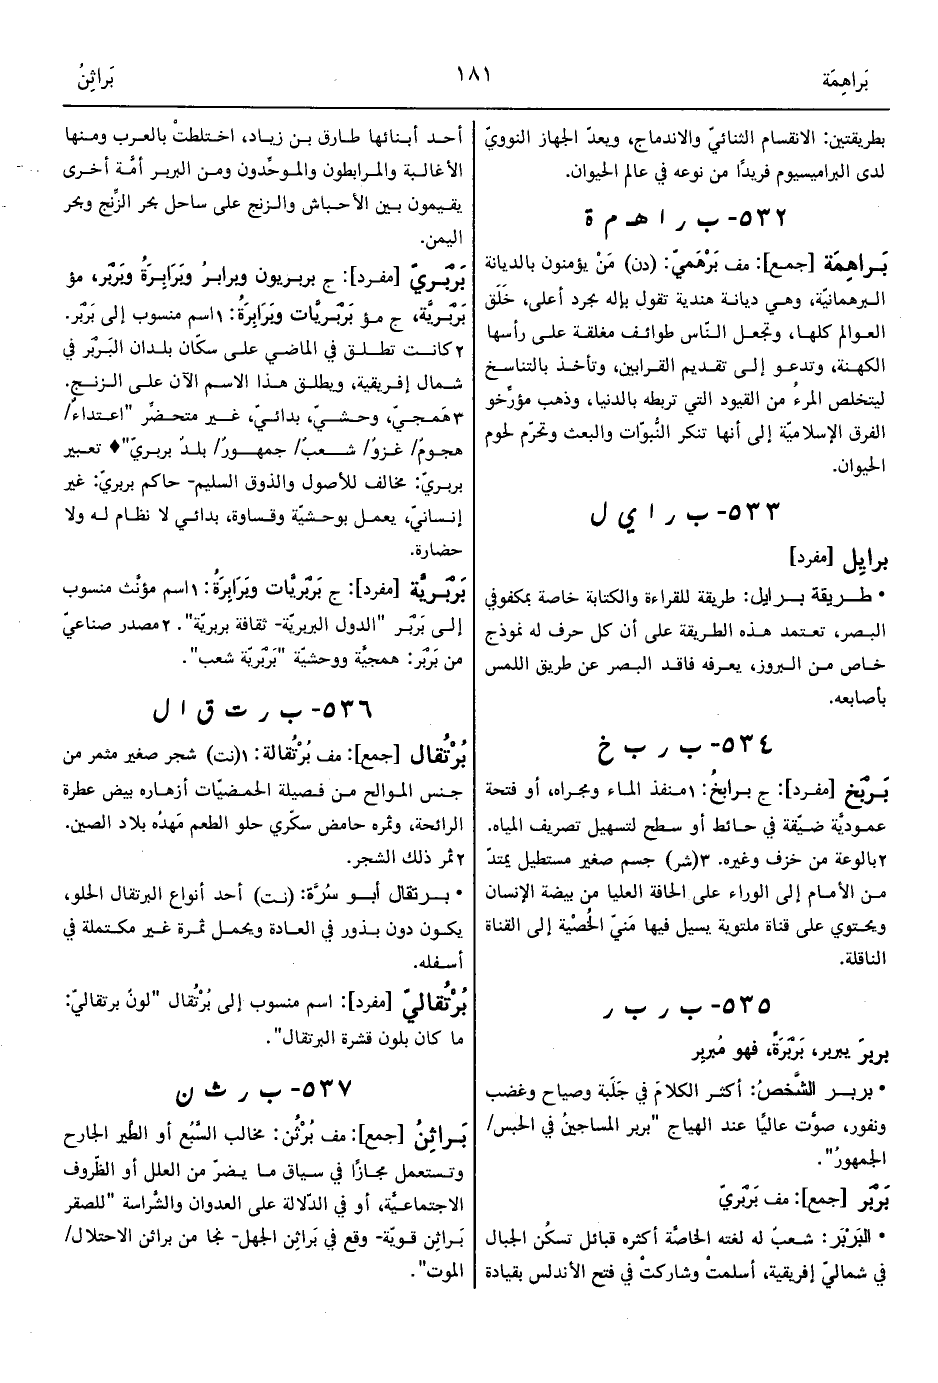 بَراهِمَة
١٨١
بَراثِنُ
بطريقتين: الانقسام الثنائيّ والاندماج، ويعدّ الجهاز النوويّ
لدى البراميسيوم فريدًا من نوعه في عالم الحيوان.
٥٣٢- ب ر ا هـ م ة
بَراهِمَة [جمع]: مف بَرْهَميّ: (دن) مَنْ يؤمنون بالديانة
البرهمانيّة، وهي ديانة هندية تقول بإله مجرد أعلى، خَلَق
العوالم كلها، وتجعل النّاس طوائف مغلقة على رأسها
الكهنة، وتدعو إلى تقديم القرابين، وتأخذ بالتناسخ
ليتخلص المرءُ من القيود التي تربطه بالدنيا، وذهب مؤرِّخو
الفرق الإسلاميّة إلى أنها تنكر النُّبوّات والبعث وتحرّم لحوم
الحيوان.
٥٣٣- ب ر ا ي ل
برايل [مفرد]
• طريقة برايل: طريقة للقراءة والكتابة خاصة بمكفوفي
البصر، تعتمد هذه الطريقة على أن كل حرف له نموذج
خاص من البروز، يعرفه فاقد البصر عن طريق اللمس
بأصابعه.
٥٣٤- ب ر ب خ
بَرْبَخ [مفرد]: ج برابخُ: ١منفذ الماء ومجراه، أو فتحة
عموديّة ضيّقة في حائط أو سطح لتسهيل تصريف المياه.
٢بالوعة من خزف وغيره. ٣(شر) جسم صغير مستطيل يمتدّ
من الأمام إلى الوراء على الحافة العليا من بيضة الإنسان
ويحتوي على قناة ملتوية يسيل فيها مَنيّ الخُصْية إلى القناة
الناقلة.
٥٣٥- ب ر ب ر
بربرَ يبربر، بَرْبَرَةً، فهو مُبربِر
• بربر الشَّخصُ: أكثر الكلامَ في جَلَبة وصياح وغضب
ونفور، صوَّت عاليًا عند الهياج "بربر المساجينُ في الحبس/
الجمهورُ".
بَرْبَر [جمع]: مف بَرْبَريّ
• البَرْبَر: شعبٌ له لغته الخاصَّة أكثره قبائل تسكُن الجبال
في شماليّ إفريقية، أسلمتْ وشاركتْ في فتح الأندلس بقيادة
أحد أبنائها طارق بن زياد، اختلطتْ بالعرب ومنها
الأغالبة والمرابطون والموحِّدون ومن البربر أمَّة أخرى
يقيمون بين الأحباش والزنج على ساحل بحر الزِّنج وبحر
اليمن.
بَرْبَريّ [مفرد]: ج بربريون وبرابرُ وبَرَابِرَةُ وبَرْبَر، مؤ
بَرْبَريَّة، ج مؤ بَرْبَريَّات وبَرَابِرَةُ: ١اسم منسوب إلى بَرْبَر.
٢كانت تطلق في الماضي على سكّان بلدان البَرْبَر في
شمال إفريقية، ويطلق هذا الاسم الآن على الزنج.
٣هَمَجيّ، وحشيّ، بدائيّ، غير متحضِّر "اعتداء/
هجومٌ/ غزوٌ/ شعبٌ/ جمهورٌ/ بلدٌ بربريّ"♦ تعبير
بربريّ: مخالف للأصول والذوق السليم- حاكم بربريّ: غير
إنسانيّ، يعمل بوحشيّة وقساوة، بدائي لا نظام له ولا
حضارة.
بَرْبَريَّة [مفرد]: ج بَرْبَريَّات وبَرَابِرَةُ: ١اسم مؤنَّث منسوب
إلى بَرْبَر "الدول البربريّة- ثقافة بربريّة". ٢مصدر صناعيّ
من بَرْبَر: همجيَّة ووحشيّة "بَرْبَريّة شعب".
٥٣٦- ب ر ت ق ا ل
بُرْتُقال [جمع]: مف بُرْتُقالة: ١(نت) شجر صغير مثمر من
جنس الموالح من فصيلة الحمضيّات أزهاره بيض عطرة
الرائحة، وثمره حامض سكّري حلو الطعم مَهدُه بلاد الصين.
٢ثمر ذلك الشجر.
• برتقال أبو سُرَّة: (نت) أحد أنواع البرتقال الحلو،
يكون دون بذور في العادة ويحمل ثمرة غير مكتملة في
أسفله.
بُرْتُقاليّ [مفرد]: اسم منسوب إلى بُرْتُقال "لونٌ برتقاليّ:
ما كان بلون قشرة البرتقال".
٥٣٧- ب ر ث ن
بَراثِنُ [جمع]: مف بُرْثُن: مخالب السَّبُع أو الطَّير الجارح
وتستعمل مجازًا في سياق ما يضرّ من العلل أو الظّروف
الاجتماعيَّة، أو في الدّلالة على العدوان والشَّراسة "للصقر
بَراثِن قويّة- وقع في بَراثِن الجهل- نجا من براثن الاحتلال/
الموت".